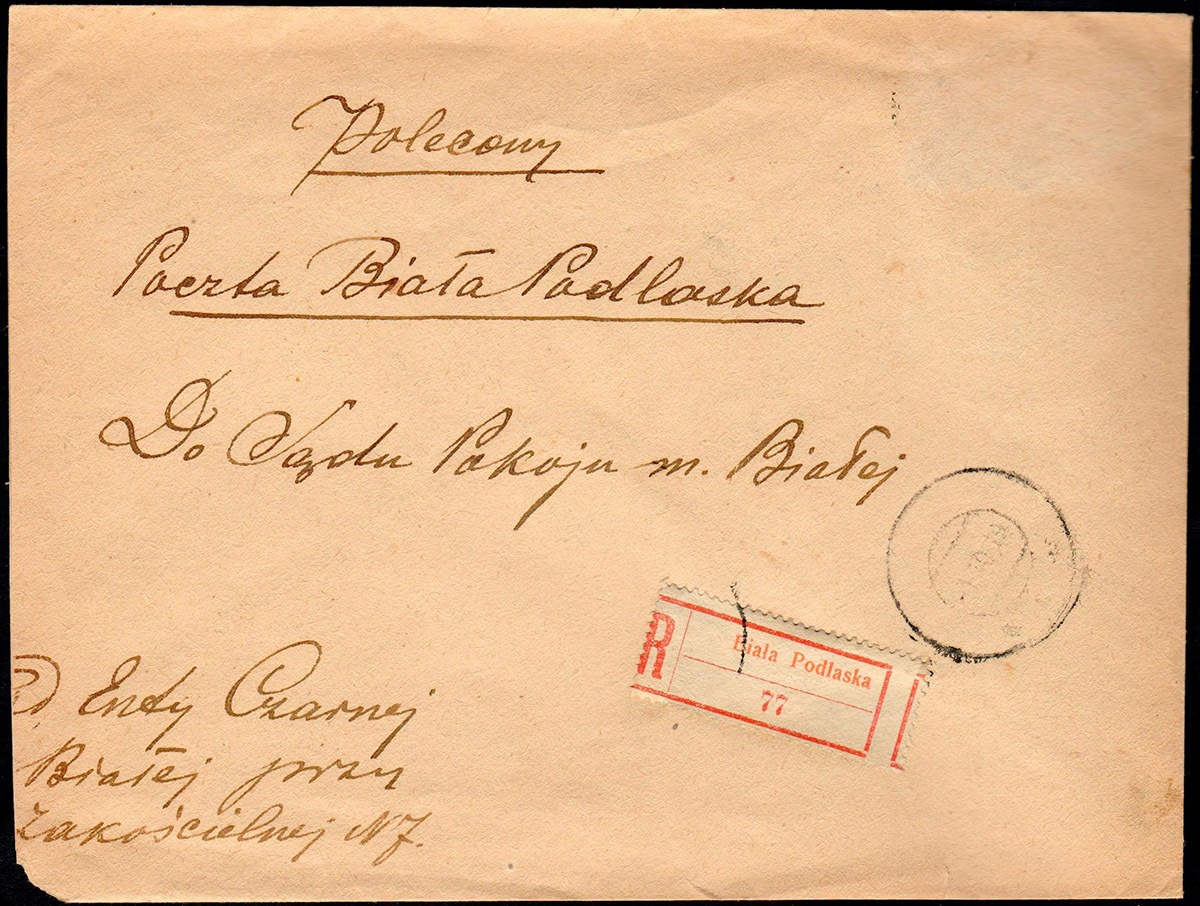 Polecony
Poczta Biała Podlaska
Do Sądu Pokoju m. Białej
R
Biała Podlaska
77
Enty Czarnej
Białej przy
Zakościelnej N 7.